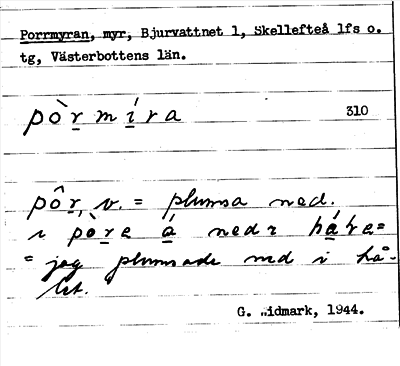 Porrmyran, myr, Bjurvattnet 1, Skellefteå lfs o.
tg, Västerbottens län.
pòrmíra 310
pôr, v. = plumsa ned.
i pòre á ned i
= jag plumsade ned i hå-
let.
G. Widmark, 1944.